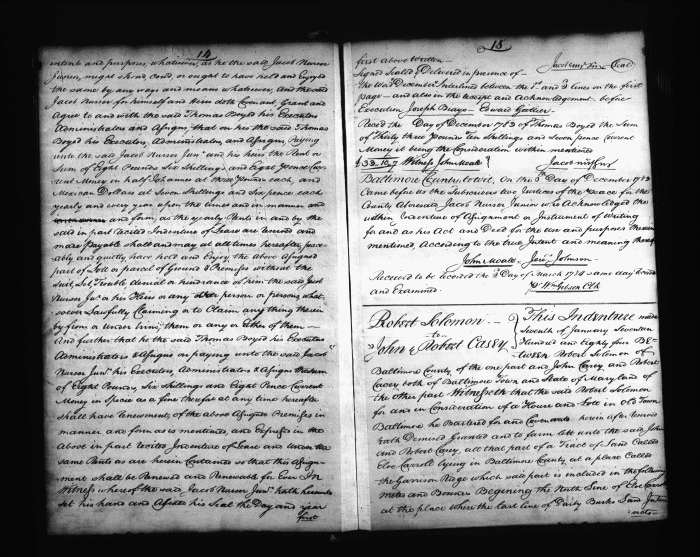 14
intents and purposes, whatsoever, as he the said Jacob Nusser
Junior, might shoud, coud or ought to have held and Enjoyed
the same by any ways and means whatsoever, and the said
Jacob Nusser for himself and Heirs doth Covenant, Grant and
Agree to and with the said Thomas Boyed his Executors
Administrators and Assigns, that on his the said Thomas
Boyed his Executors, Administrators, and Assigns, Paying
unto the said Jacob Nusser Junr and his heirs the Rent or
Sum of Eight Pounds Six Shillings and Eight Pence Cur-
rent Money in half Johannes at three Pounds each, and
Mexican Dollars at Seven Shillings and Six pence each
yearly and every year upon the times and in manner
and form, as the yearly Rents in and by the
said in part recited Indenture of Lease are reserved and
made Payable shall and may at all times hereafter, peace-
ably and quietly have held and Enjoy, the above Assigned
part of Lott or parcel of Ground & Premises without the
suit, Let, Trouble denial or hindrance of him the said Jacob
Nusser Junr or his Heirs or any other person or persons what-
soever Lawfully Claiming or to Claim any thing therein
by from or under him, them or any or Either of them —
And further that he the said Thomas Boyed his Executors
Administrators & Assigns on paying unto the said Jacob
Nusser Junr his Executors, Administrators & Assigns the sum
of Eight Pounds, Six Shillings and Eight Pence Current
Money in Specie as a fine therefor at any time hereafter
shall have Renewment, of the above Assigned Premises in
manner and form as is mentioned, and Expressed in the
above in part recited Indenture of Lease and under the
same Rents as are herein Contained so that this Assign-
ment shall be Renewed and Renewable for Ever In
Witness whereof the said Jacob Nusser Junr hath hereunto
set his hand and Affixed his Seal the Day and year
first
15
first above written —
Signed Sealed & Delivered in presence of —
Seal
The word December Interlined between the 1st and 3 lines on the first
page — and also in the receipt and acknowledgement before
Execution Joseph
Recd the Day of December 1783 of Thomas Boyed the Sum
of Thirty three pounds Ten Shillings and Seven pence Current
Money it being the Consideration within mentioned
£ 33.10.7 Witness John Moale
Baltimore County to wit, On the 3d Day of December 1783
Came before us the Subscribers two Justices of the peace for the
County Aforesaid, Jacob Nusser Junior who Acknowledged the
within Indenture of Assignment or Instrument of Writing
for and as his Act and Deed for the use and purposes therein
mentioned, According to the true Intent and meaning thereof
John Moale Johnson
Received to be recorded the 3d Day of March 1784 same day Recorded
and Examined
Wm Gibson Clk
Robert Solomon
to
John & Robert Casey
This Indenture made
Seventh of January Seventeen
Hundred and Eighty five Be-
tween Robert Solomon of
Baltimore County of the one part and John Casey and Robert
Casey both of Baltimore Town and State of Maryland of
the other part Witnesseth that the said Robert Solomon
for and in Consideration of a House and Lott in Old Town
Baltimore he Bartered for and Covenants herein after
hath Demised Granted and to farm lett unto the said John
and Robert Casey, all that part of a Tract of Land Called
Elec Carroll Lying in Baltimore County at a place Called
the Garrison Ridge which said part is included in the following
metes and Bounds Begining the Ninth Line of
at the place where the last line of Land